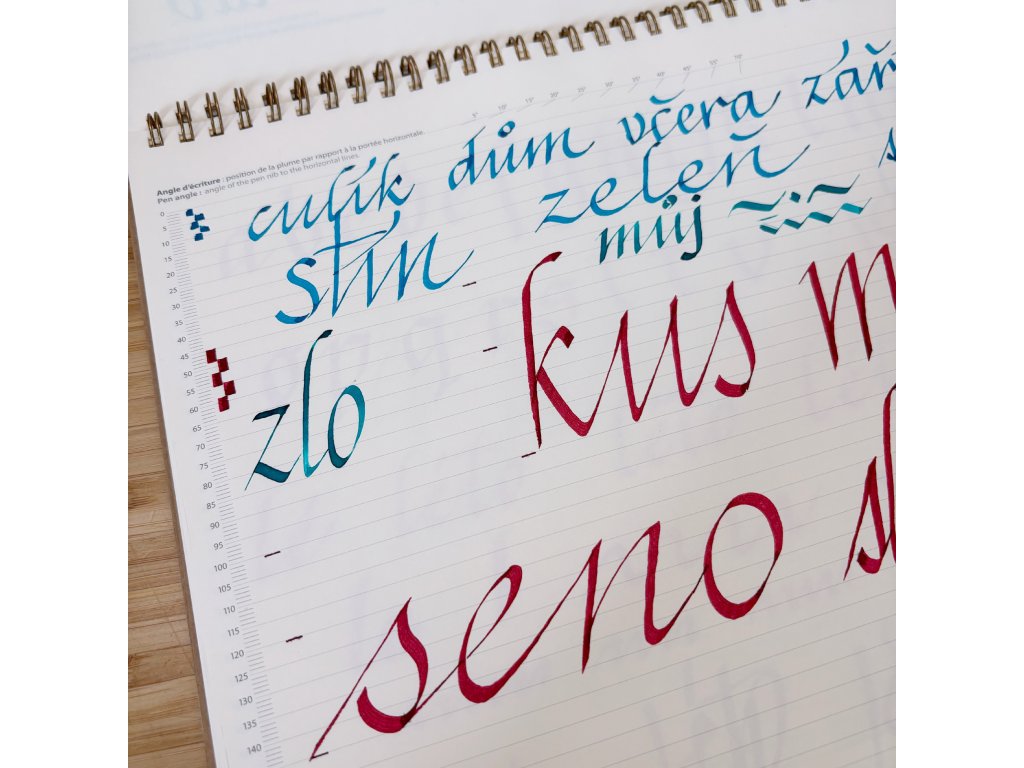 5° 10° 15° 20° 25° 30° 35° 40° 45° 50° 55° 70°
Angle d'écriture : position de la plume par rapport à la portée horizontale.
Pen angle : angle of the pen nib to the horizontal lines.
culík dům včera zář
stín zeleň
můj
zlo kus m
seno sl
0
5
10
15
20
25
30
35
40
45
50
55
60
65
70
75
80
85
90
95
100
105
110
115
120
125
130
135
140